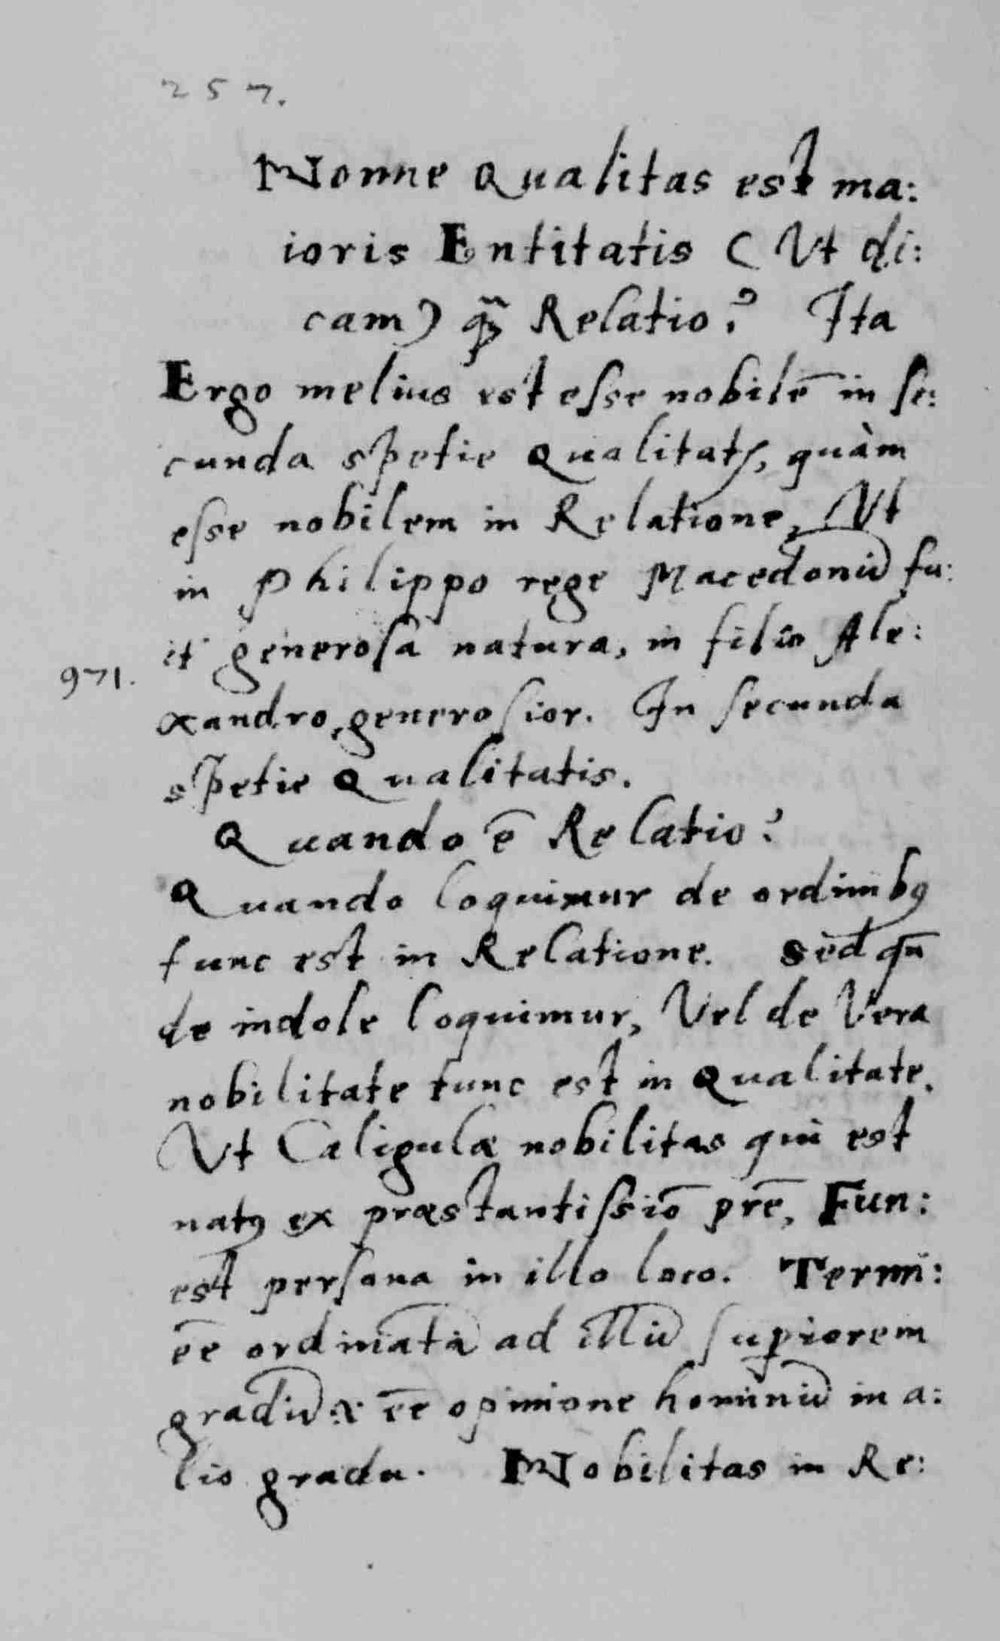 257.
Nonne Qualitas est ma:
ioris Entitatis ( Vt di:
cam) qꝫ̃ Relatio? Ita
Ergo melius est esse nobilē in se:
cunda spetie Qualitatꝭ, quàm
esse nobilem in Relatione, Vt
in Philippo rege Macedoniũ fu:
it generosa natura, in filio Ale:
971.
xandro, generosior. In secunda
spetie Qualitatis.
Quando ē Relatio?
Quando loquimur de ordinibꝯ
tunc est in Relatione. Sed qñ
de indole loquimur, Vel de Vera
nobilitate tunc est in Qualitate.
Vt Caligulæ nobilitas qui est
natꝯ ex præstantissiō prē, Fun:
est persona in illo loco. Termi:
ēe ordinatã ad illũ supiorem
gradũ & ēe opinione hominũ in a:
lio gradu. Nobilitas in Re: